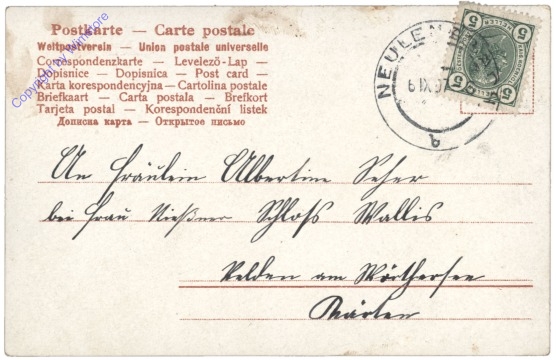 Postkarte — Carte postale
Weltpostverein — Union postale universelle
Correspondenzkarte — Levelező-Lap —
Dopisnice — Dopisnica — Post card —
Karta korespondencyjna — Cartolina postale
Briefkaart — Carta postala — Brefkort
Tarjeta postal — Korespondenční listek
Дописна карта — Открытое письмо
Copyright by
5 HELLER 5
5 5
6 IX 07
An Fräulein Albertine
bei Frau Schloß Wallis
Velden am Wörthersee
Kärten